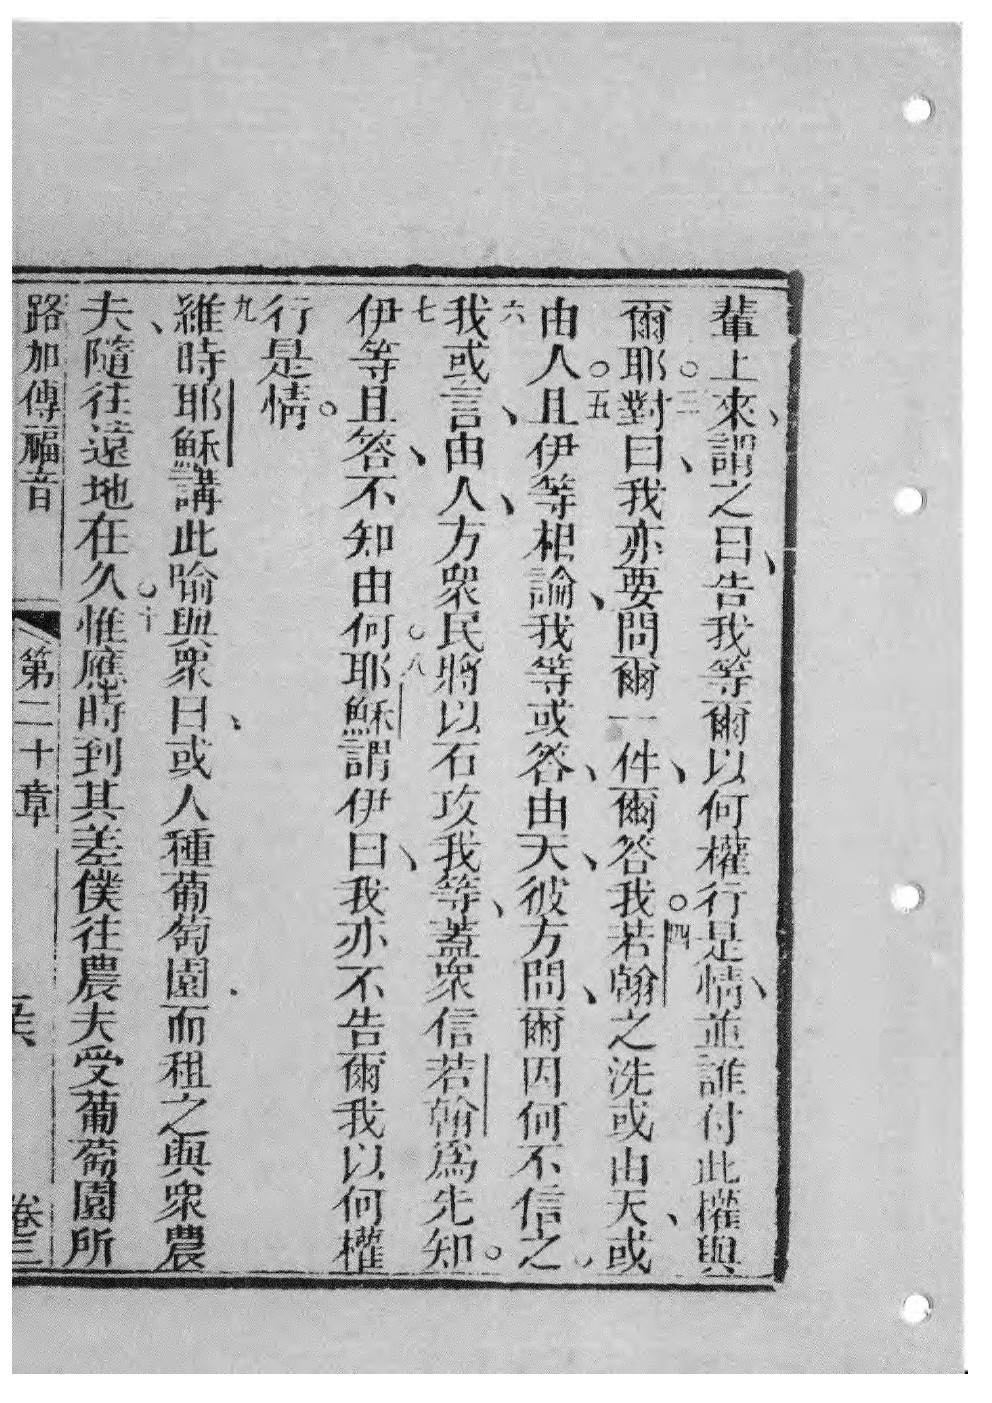 輩上來、謂之曰、告我等爾以何權行是情、並誰付此權與
爾耶。三對曰、我亦要問爾一件、爾答我。四若翰之洗或由天、或
由人。五且伊等相論、我等或答、由天、彼方問、爾因何不信之。
六我或言、由人、方衆民將以石攻我等、蓋衆信若翰爲先知。
七伊等且答、不知由何。八耶穌謂伊曰、我亦不告爾我以何權
行是情。
九維時耶穌講此喻與衆曰、或人種葡萄園而租之與衆農
夫、隨往遠地在久。十惟應時到其差僕往農夫受葡萄園所
路加傳福音 第二十章 卷三